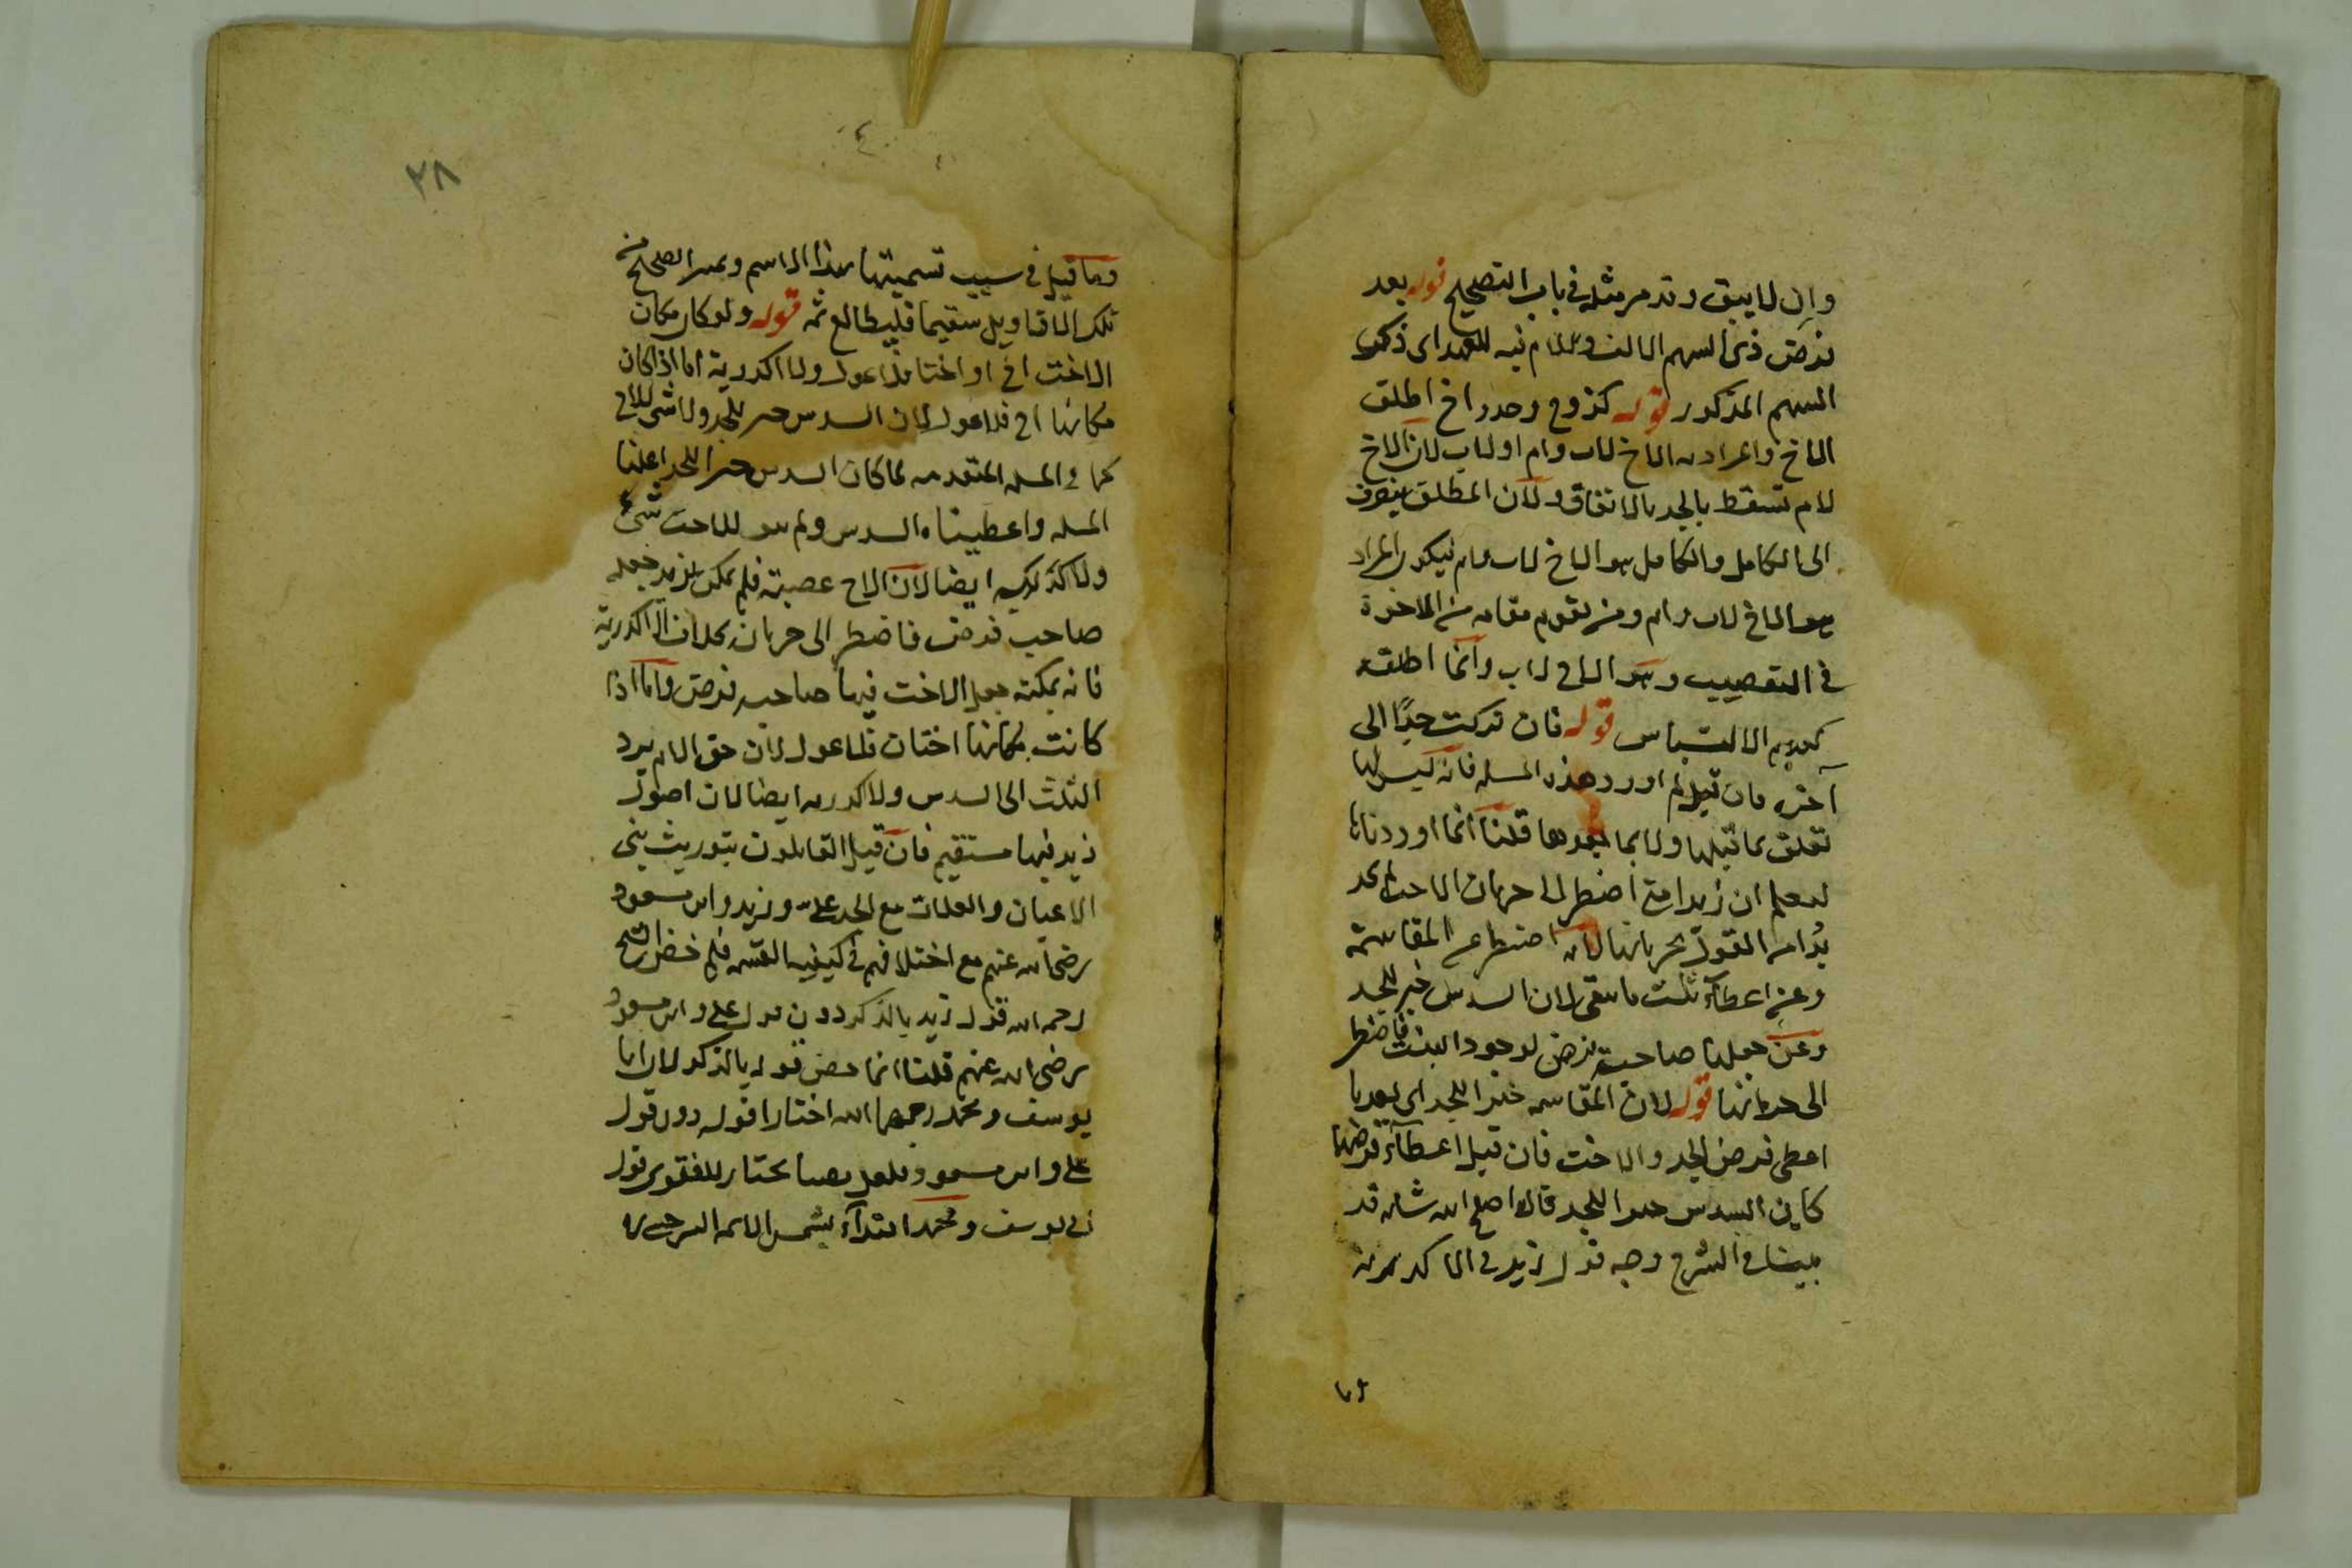 وان لا يبق وقد مر مثله في باب التصحيح قوله بعد
فرض ذى السهم الالف واللام فيه للعهد اى ذكر
السهم المذكور قوله كزوج وجد واخ اطلق
الاخ والمراد به الاخ لاب وام او لاب لان الاخ
لام تسقط بالجد بالاتفاق ولان المطلق ينصرف
الى الكامل والكامل هو الاخ لاب وام فيكون المراد
هو الاخ لاب وام ومن يقوم مقامه من الاخوة
في التعصيب وهو الاخ لاب وانما اطلقه
الالتباس قوله فان تركت جدا الى
آخره فان قيل لم اورد هذه المسله فانه ليس لها
تعلق بما قبلها ولا بما بعدها قلنا انما اوردناها
ليعلم ان زيدا متى اضطر الى حرمان الاخت
القول بحرمانها لانه اضطر عن المقاسمة
وعن اعطاء ثلث ما يبقى لان السدس خير للجد
وعن جعلها صاحبة فرض لوجود البنت فاضطر
الى حرمانها قوله لان المقاسمه خير للجد اى بعد ما
اعطى فرض الجد والاخت فان قيل اعطاء فرضها
كاين السدس خيرا للجد قال اصلح الله شانه قد
بينا في الشرح وجه قول زيد في الاكدرية
وما
٢٨
وما قيل في سبب تسميتها بهذا الاسم وتميز الصحيح من
تلك الاقاويل سقيما فليطالع ثمه قوله ولو كان مكان
الاخت اخ او اختان فلا عول ولا اكدرية اما اذا كان
مكانها اخ فلا عول لان السدس خير للجد ولا شى للاخ
كما في المسله المتقدمه لما كان السدس خيرا للجد اعلنا
المسله واعطيناه السدس ولم يبق للاخت شئ
ولا اكدرية ايضا لان الاخ عصبة فلم يمكن لزيد جعله
صاحب فرض فاضطر الى حرمانه بخلاف الاكدرية
فانه يمكنه جعل الاخت فيها صاحبه فرض واما اذا
كانت مكانها اختان فلا عول لان حق الام يرد
الثلث الى السدس ولا اكدريه ايضا لان اصول
زيد فيها مستقيم فان قيل القايلون بتوريث بنى
الاعيان والعلات مع الجد على وزيد وابن مسعود
رضى الله عنهم مع اختلافهم في كيفيه القسمه فلم خص الشيخ
رحمه الله قول زيد بالذكر دون قول على وابن مسعود
رضى الله عنهم قلنا انما خص قوله بالذكر لان ابا
يوسف ومحمد رحمهما الله اختارا قوله دون قول
على وابن مسعود ولعل يختار للفتوى قول
ابى يوسف ومحمد اقتداء بشمس الائمه السرخسى